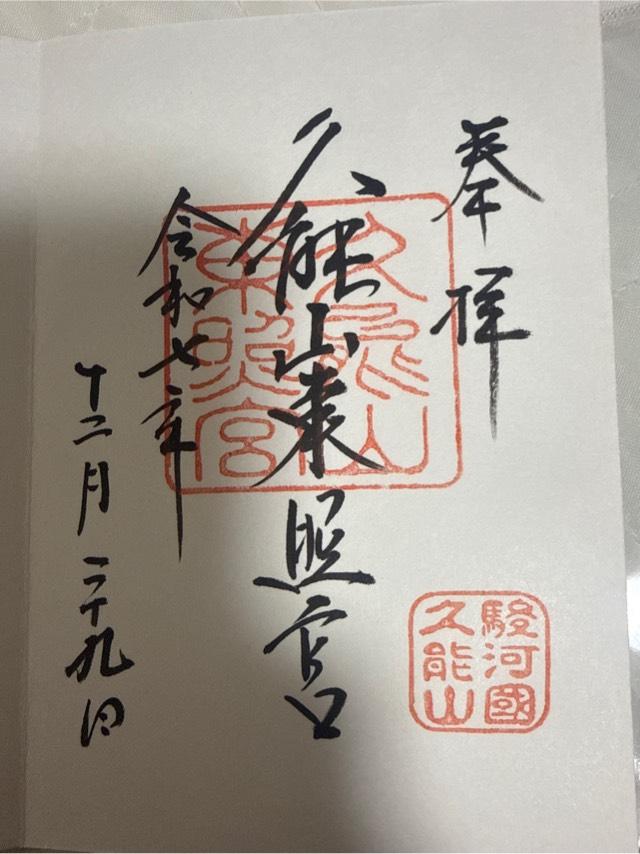 奉拝
久能山東照宮
令和七年
十二月二十九日
久能山
東照宮
駿河國
久能山